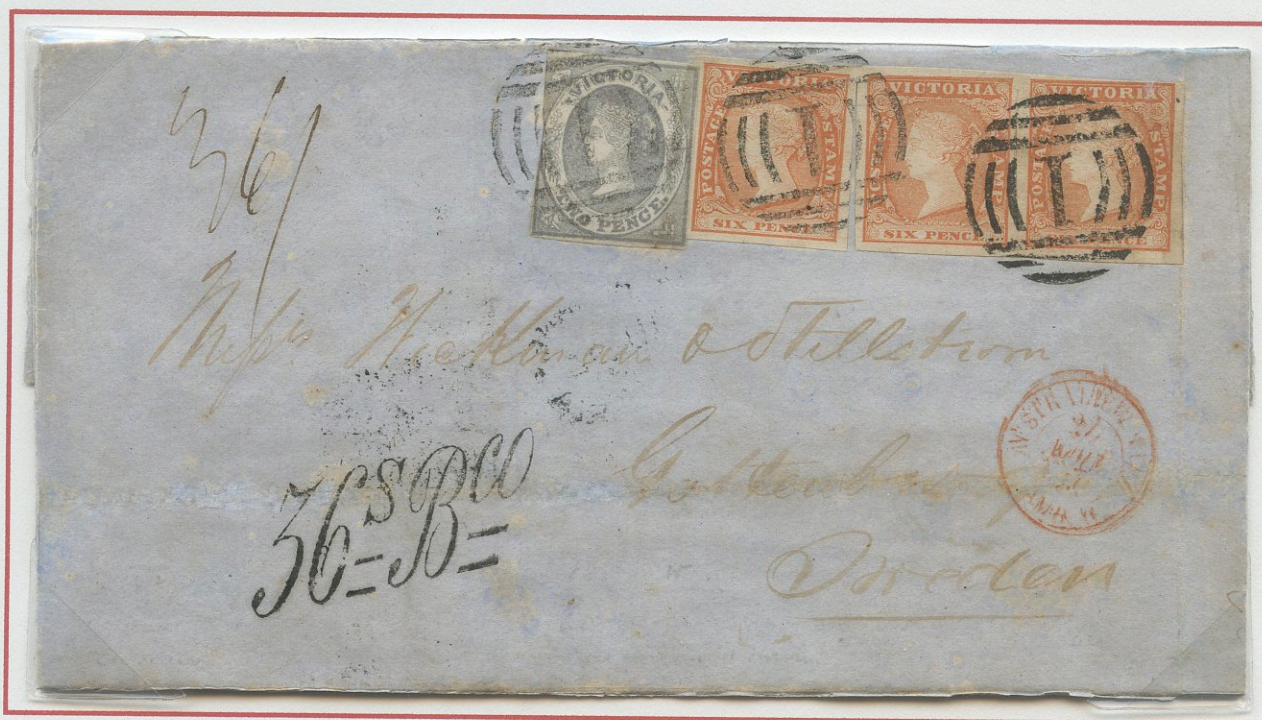 VICTORIA
TWO PENCE.
VICTORIA
POSTAGE STAMP
SIX PENCE
VICTORIA
POSTAGE STAMP
SIX PENCE
VICTORIA
POSTAGE STAMP
PENCE
1
1
36/
Mess Wickman & Stillstrom
Gottenburg
Sweden
36 S Bco